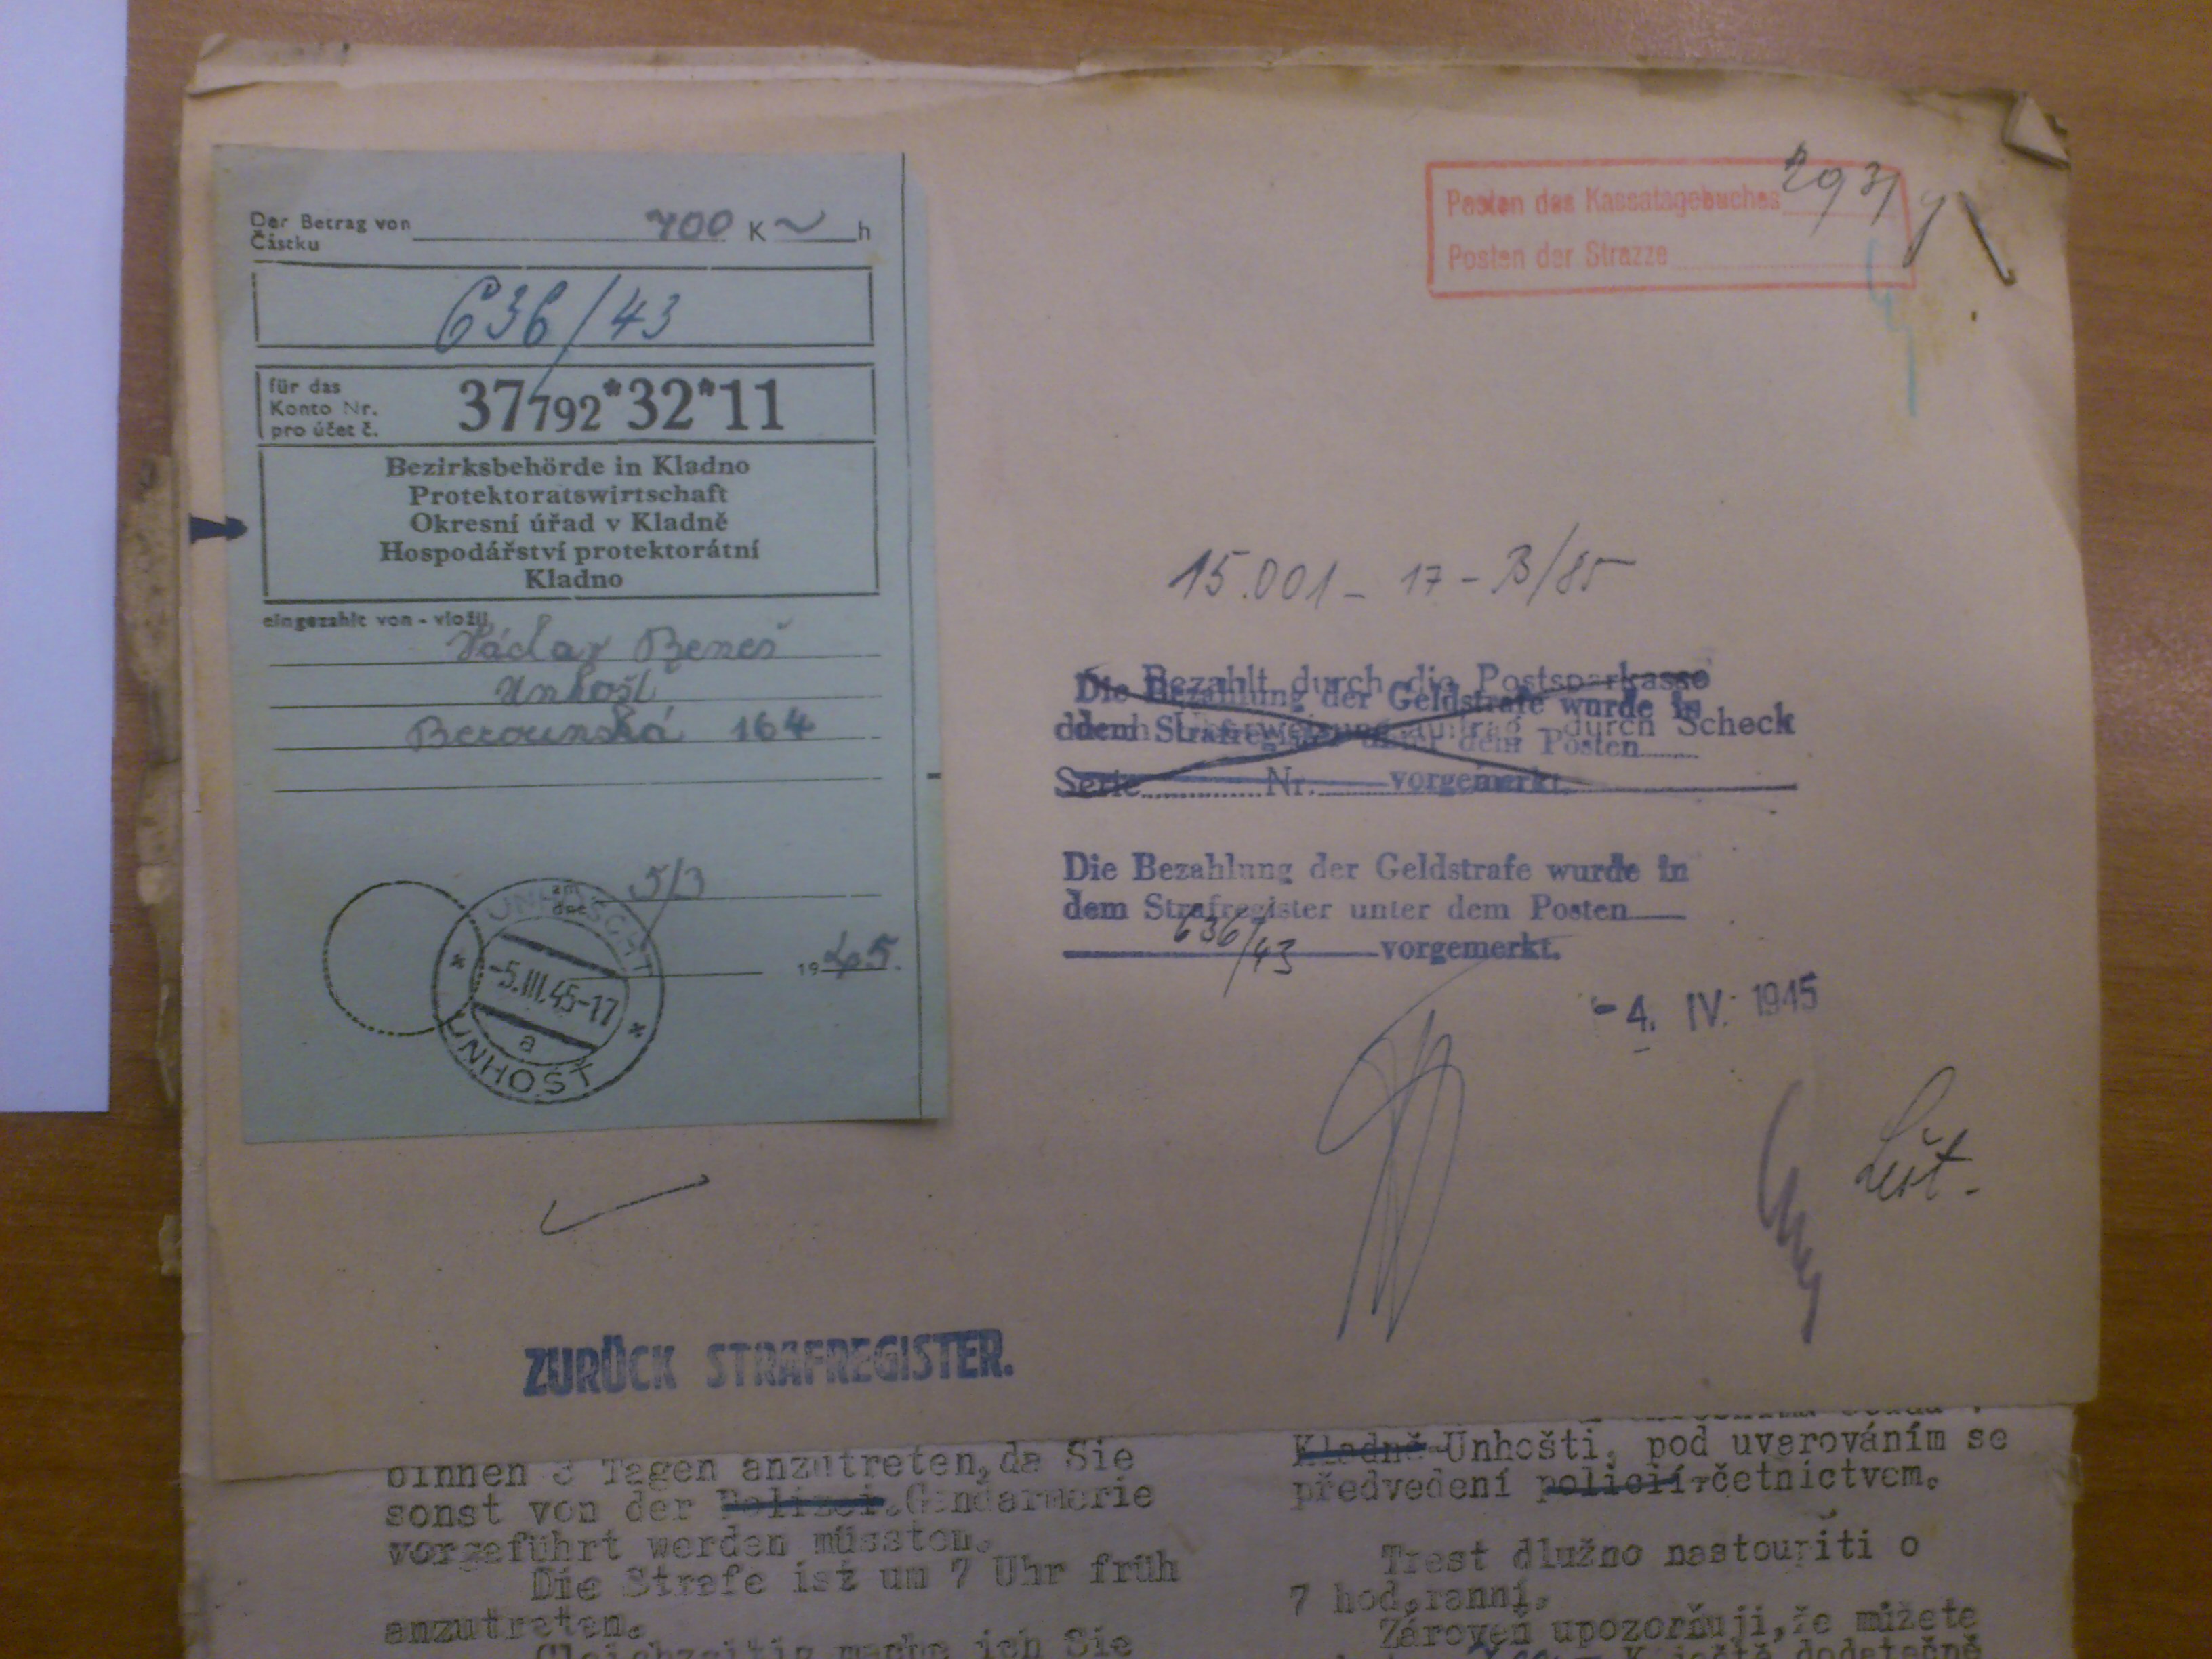 Der Betrag von
Částku
700 K h
636/43
für das
Konto Nr.
pro účet č.
37792*32*11
Bezirksbehörde in Kladno
Protektoratswirtschaft
Okresní úřad v Kladně
Hospodářství protektorátní
Kladno
eingezahlt von - vložil
Václav Beneš
Unhošť
Berounská 164
am
dne
5/3
1945.
UNHOSCHT
-5.III.45-17
a
UNHOŠŤ
Posten des Kassatagebuches
Posten der Strazze
15.001 - 17 - B/85
Bezahlt durch die Postsparkasse
Die Bezahlung der Geldstrafe wurde in
dem Strafregister unter dem Posten
durch Scheck
Serie Nr. vorgemerkt.
Die Bezahlung der Geldstrafe wurde in
dem Strafregister unter dem Posten
636/43 vorgemerkt.
-4. IV. 1945
ZURÜCK STRAFREGISTER.
binnen 3 Tagen anzutreten, da Sie
sonst von der Polizei.Gendarmerie
vorgeführt werden müssten.
Die Strafe ist um 7 Uhr früh
anzutreten.
Gleichzeitig mache ich Sie
Kladně-Unhošti, pod uvarováním se
předvedení policií-četnictvem.
Trest dlužno nastoupiti o
7 hod.ranní.
Zároveň upozorňuji,že můžete
dodatečně